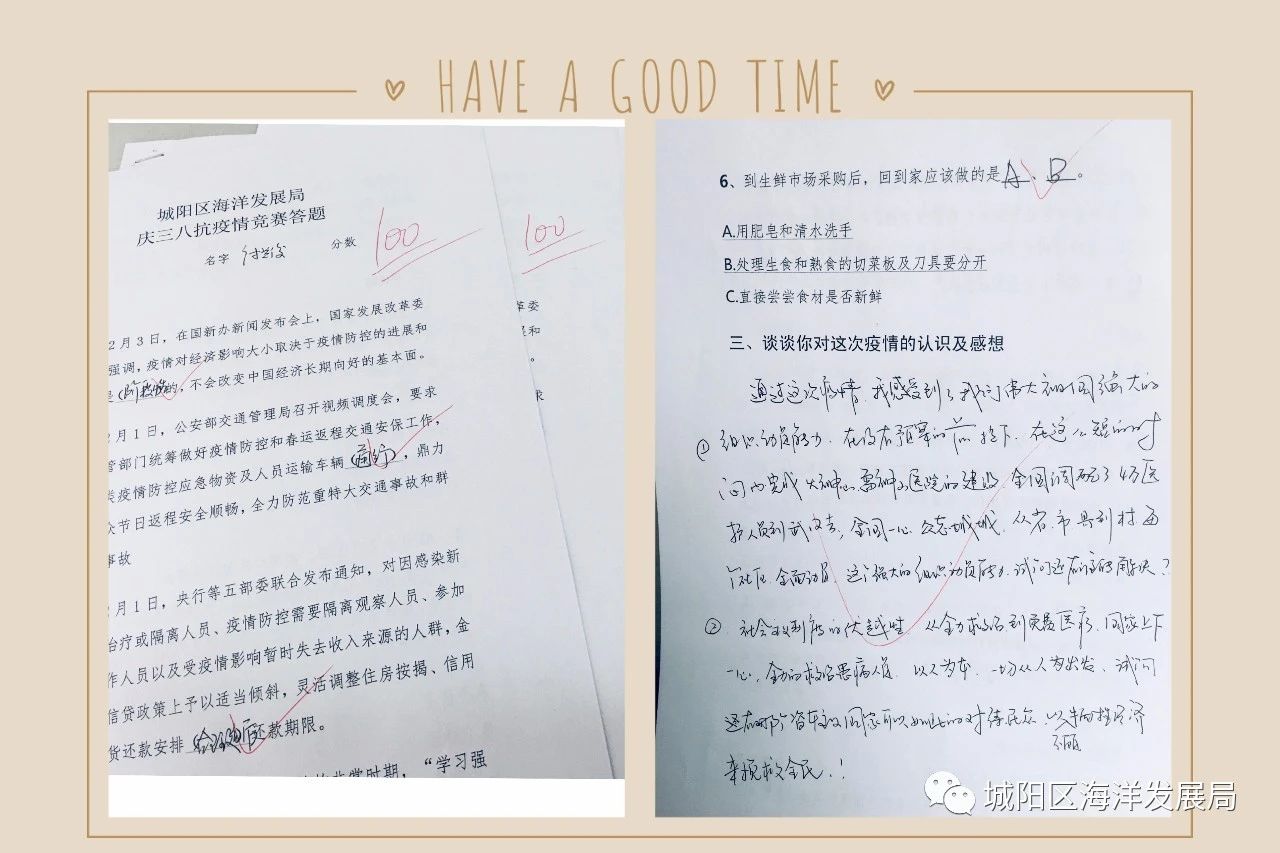 HAVE A GOOD TIME
城阳区海洋发展局
庆三八抗疫情竞赛答题
名字
分数 100
2月3日，在国新办新闻发布会上，国家发展改革委
强调，疫情对经济影响大小取决于疫情防控的进展和
是（阶段性的，不会改变中国经济长期向好的基本面。
月1日，公安部交通管理局召开视频调度会，要求
管部门统筹做好疫情防控和春运返程交通安保工作，
疫情防控应急物资及人员运输车辆（通行），鼎力
众节日返程安全顺畅，全力防范重特大交通事故和群
事故
月1日，央行等五部委联合发布通知，对因感染新
治疗或隔离人员、疫情防控需要隔离观察人员、参加
作人员以及受疫情影响暂时失去收入来源的人群，金
信贷政策上予以适当倾斜，灵活调整住房按揭、信用
货还款安排（合理延后还款期限。
非常时期，“学习强
100
革委
和
。
求
6、到生鲜市场采购后，回到家应该做的是A、B。
A.用肥皂和清水洗手
B.处理生食和熟食的切菜板及刀具要分开
C.直接尝尝食材是否新鲜
三、谈谈你对这次疫情的认识及感想
通过这次疫情，我感受到了我们伟大祖国强大的
① 组织动员能力，在没有预幕的前提下，在这么短的时
间内完成火神山、雷神山医院的建设，全国调配了4万医
护人员到武汉去，全国一心，众志成城，从省、市、县到村、每
个社区，全面动员，这个强大的组织动员能力，试问还有谁能解决？
② 社会主义制度的优越性，从全力救治到免费医疗，国家上下
一心，全力的救治患病人员，以人为本，一切从人为出发，试问
还有哪个资本主义国家可以如此的对待民众，以牺牲经济
来换救全民！
城阳区海洋发展局